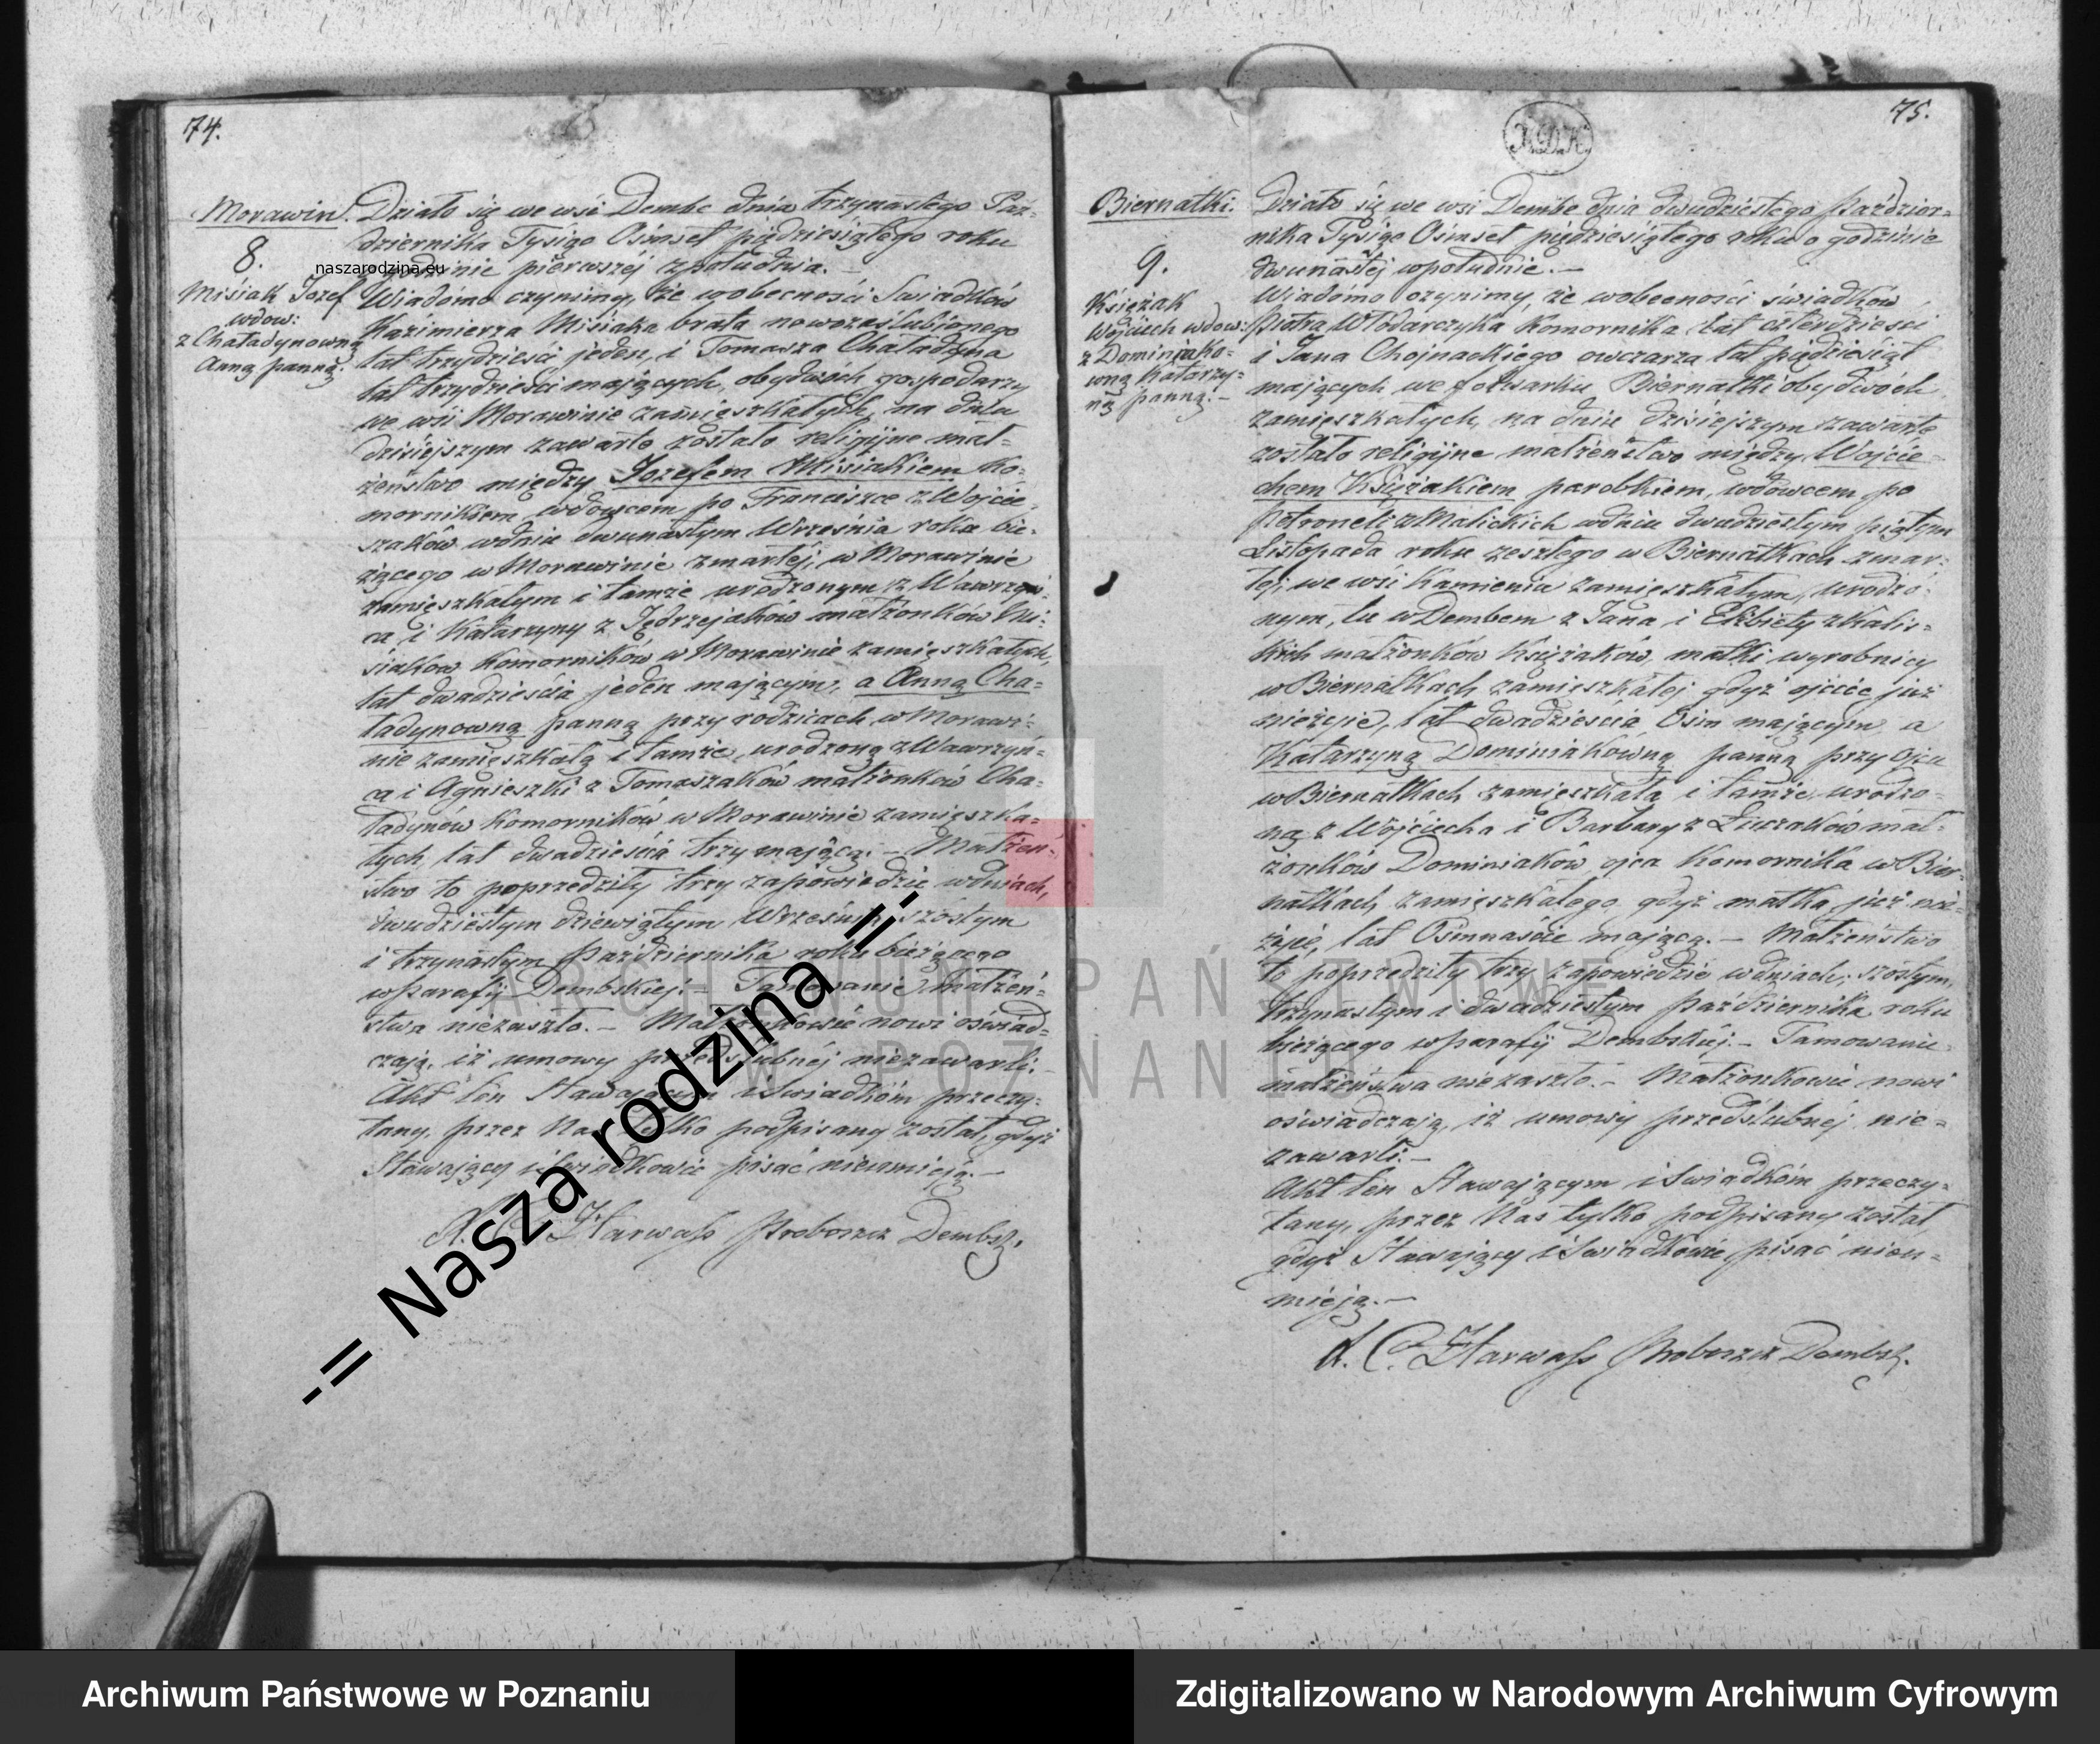 74.
Morawin.
8.
Misiak Jozef
wdow:
z Chaładynowną
Anną panną.
Działo się we wsi Dembe dnia trzynastego Paź-
dziernika Tysiąc Ośmset pięćdziesiątego roku
o godzinie pierwszéj z południa. —
Wiadomo czynimy, że w obecności Swiadków
Kazimierza Misiaka brata nowozaślubionego
lat trzydzieści jeden, i Tomasza Chaładyna
lat trzydzieści mających, obydwóch gospodarzy
we wsi Morawinie zamieszkałych, na dniu
dzisiejszym zawarte zostało religijne mał-
żeństwo między Jozefem Misiakiem Ko-
mornikiem wdowcem po Franciszce z Wojcie-
szaków w dniu dwunastym Września roku bie-
żącego w Morawinie zmarłej, w Morawinie
zamieszkałym i tamże urodzonym z Wawrzyń-
ca i Katarzyny z Jędrzejaków małżonków Mi-
siaków Komorników w Morawinie zamieszkałych,
lat dwadzieścia jeden mającym, a Anną Cha-
ładynowną panną przy rodzicach w Morawi-
nie zamieszkałą i tamże urodzoną z Wawrzyń-
ca i Agnieszki z Tomaszaków małżonków Cha-
ładynów Komorników w Morawinie zamieszka-
łych, lat dwadzieścia trzy mającą. — Małżeń-
stwo to poprzedziły trzy zapowiedzie w dniach,
dwudziestym dziewiątym Września, szóstym
i trzynastym Października roku bieżącego
w parafij Dembskiej. — Tamowanie małżeń-
stwa niezaszło. — Małżonkowie nowi oświad-
czają, iż umowy przedślubnéj niezawarli. —
Akt ten Stawającym i Swiadkóm przeczy-
tany, przez Nas tylko podpisany został, gdyż
Stawający i Swiadkowie pisać nieumieją. —
X. C. Harwass Proboszcz Dembsk.
75.
Biernatki.
9.
Księżak
Wojciech wdow:
z Dominiako-
wną Katarzy-
ną panną. —
Działo się we wsi Dembe dnia dwudziestego Paździer-
nika Tysiąc Ośmset pięćdziesiątego roku o godzinie
dwunastéj w południe. —
Wiadomo czynimy, że w obecności świadków
Piotra Włodarczyka Komornika lat czterdzieści
i Jana Chojnackiego owczarza lat pięćdziesiąt
mających we folwarku Biernatki obydwóch
zamieszkałych, na dniu dzisiejszym zawarte
zostało religijne małżeństwo między Wojcie-
chem Księżakiem parobkiem, wdowcem po
Petroneli z Malickich w dniu dwudziestym piątym
Listopada roku zeszłego w Biernatkach zmar-
łej, we wsi Kamienia zamieszkałym, urodzo-
nym, tu w Dembem z Jana i Elżbiety z Kalis-
kich małżonków Księżaków, matki wyrobnicy
w Biernatkach zamieszkałej gdyż ojciec już
nieżyje, lat dwadzieścia Ośm mającym a
Katarzyną Dominiakówną panną przy ojcu
w Biernatkach zamieszkałą i tamże urodzo-
ną z Wojciecha i Barbary z Łuczaków mał-
żonków Dominiaków, ojca Komornika w Bier-
natkach zamieszkałego, gdyż matka już nie-
żyje, lat Osimnaście mającą. — Małżeństwo
to poprzedziły trzy zapowiedzie w dniach; szóstym,
trzynastym i dwudziestym Października roku
bieżącego w parafij Dembskiéj. — Tamowanie
małżeństwa niezaszło. — Małżonkowie nowi
oświadczają, iż umowy przedślubnéj nie-
zawarli. —
Akt ten Stawającym i Swiadkóm przeczy-
tany, przez Nas tylko podpisany został,
gdyż Stawający i Swiadkowie pisać nieu-
mieją. —
X. C. Harwass Proboszcz Dembsk.
naszarodzina.eu
-= Nasza rodzina =-
ARCHIWUM PAŃSTWOWE
W POZNANIU
Archiwum Państwowe w Poznaniu
Zdigitalizowano w Narodowym Archiwum Cyfrowym